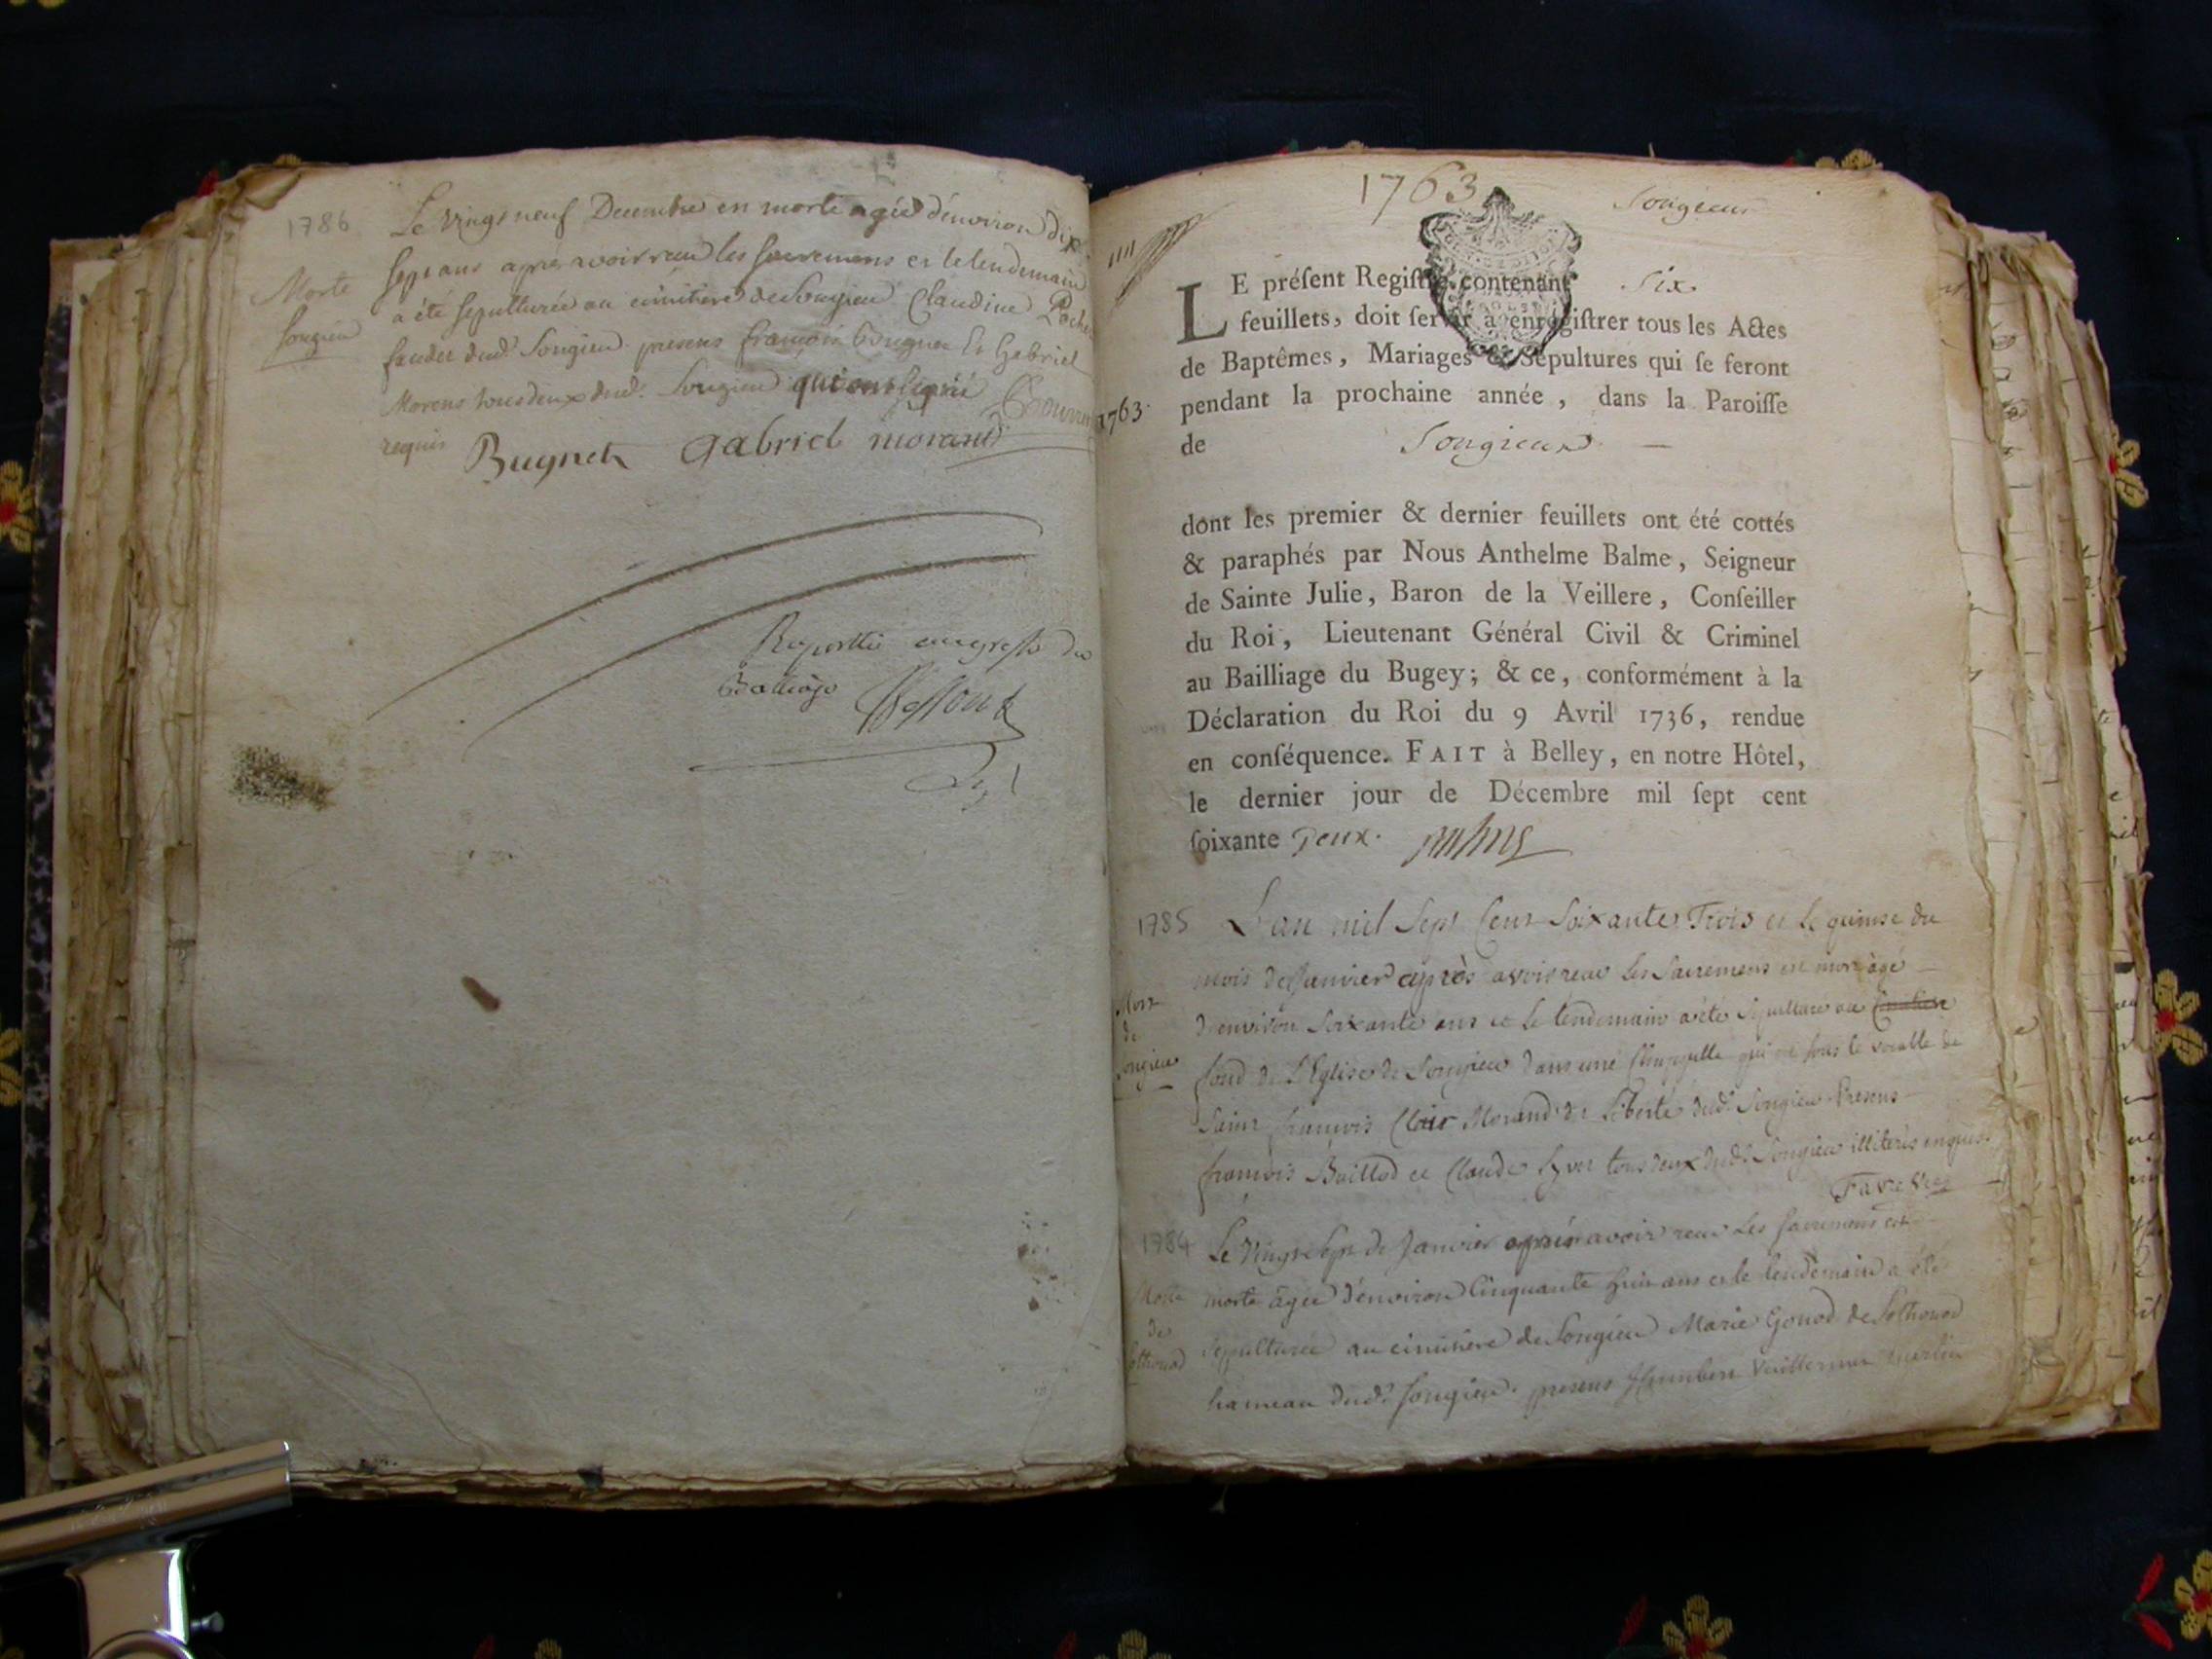 1786
Le vingt neuf Decembre est morte agée d'environ dix
Morte
sept ans apres avoir recu les sacremens et le lendemain
Songieu
a été sepulturée au cimitiere de Songieu Claudine
dud. Songieu presens françois Bougnet Et Gabriel
Morens tous deux dud. Songieu qui ont signé
requis
Bugnet gabriel morand
du
Bailliage
1763
Songieu
LE préſent Regiſtre contenant Six
feuillets, doit ſervir à enrégiſtrer tous les Actes
de Baptêmes, Mariages & Sépultures qui ſe feront
1763. pendant la prochaine année, dans la Paroiſſe
de Songieux
dont les premier & dernier feuillets ont été cottés
& paraphés par Nous Anthelme Balme, Seigneur
de Sainte Julie, Baron de la Veillere, Conſeiller
du Roi, Lieutenant Général Civil & Criminel
au Bailliage du Bugey; & ce, conformément à la
Déclaration du Roi du 9 Avril 1736, rendue
en conſéquence. FAIT à Belley, en notre Hôtel,
le dernier jour de Décembre mil ſept cent
ſoixante Deux.
1785
L'an mil Sept Cent Soixante Trois et Le quinse du
mois de Janvier après avoir reçu Les Sacremens est mort âgé
Mort
de
Songieu
D'environ Soixante ans et Le lendemain a été Sepulturé au Cimitiere
fond de L'Eglise de Songieu Dans une Chappelle qui est sous le vocable de
Saint françois Clair Morand dud. Songieu Presens
françois Baillod et Claude tous deux dud. Songieu illiterés enquis
1784
Le vingt Sept de Janvier après avoir recu Les Sacremens est
Morte
de
Sothonod
morte âgée d'environ Cinquante huit ans et le lendemain a été
sepulturée au cimitiere de Songieu Marie Gonod de Sothonod
hameau dud. Songieu. presens Humbert Vuillermet